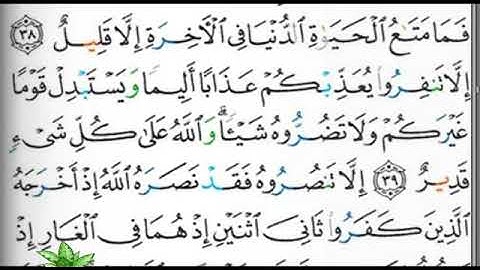 فَمَا مَتَٰعُ ٱلْحَيَوٰةِ ٱلدُّنْيَا فِى ٱلْـَٔاخِرَةِ إِلَّا قَلِيلٌ ٣٨
إِلَّا تَنفِرُوا۟ يُعَذِّبْكُمْ عَذَابًا أَلِيمًا وَيَسْتَبْدِلْ قَوْمًا
غَيْرَكُمْ وَلَا تَضُرُّوهُ شَيْـًٔا ۗ وَٱللَّهُ عَلَىٰ كُلِّ شَىْءٍ
قَدِيرٌ ٣٩ إِلَّا تَنصُرُوهُ فَقَدْ نَصَرَهُ ٱللَّهُ إِذْ أَخْرَجَهُ
ٱلَّذِينَ كَفَرُوا۟ ثَانِىَ ٱثْنَيْنِ إِذْ هُمَا فِى ٱلْغَارِ إِذْ